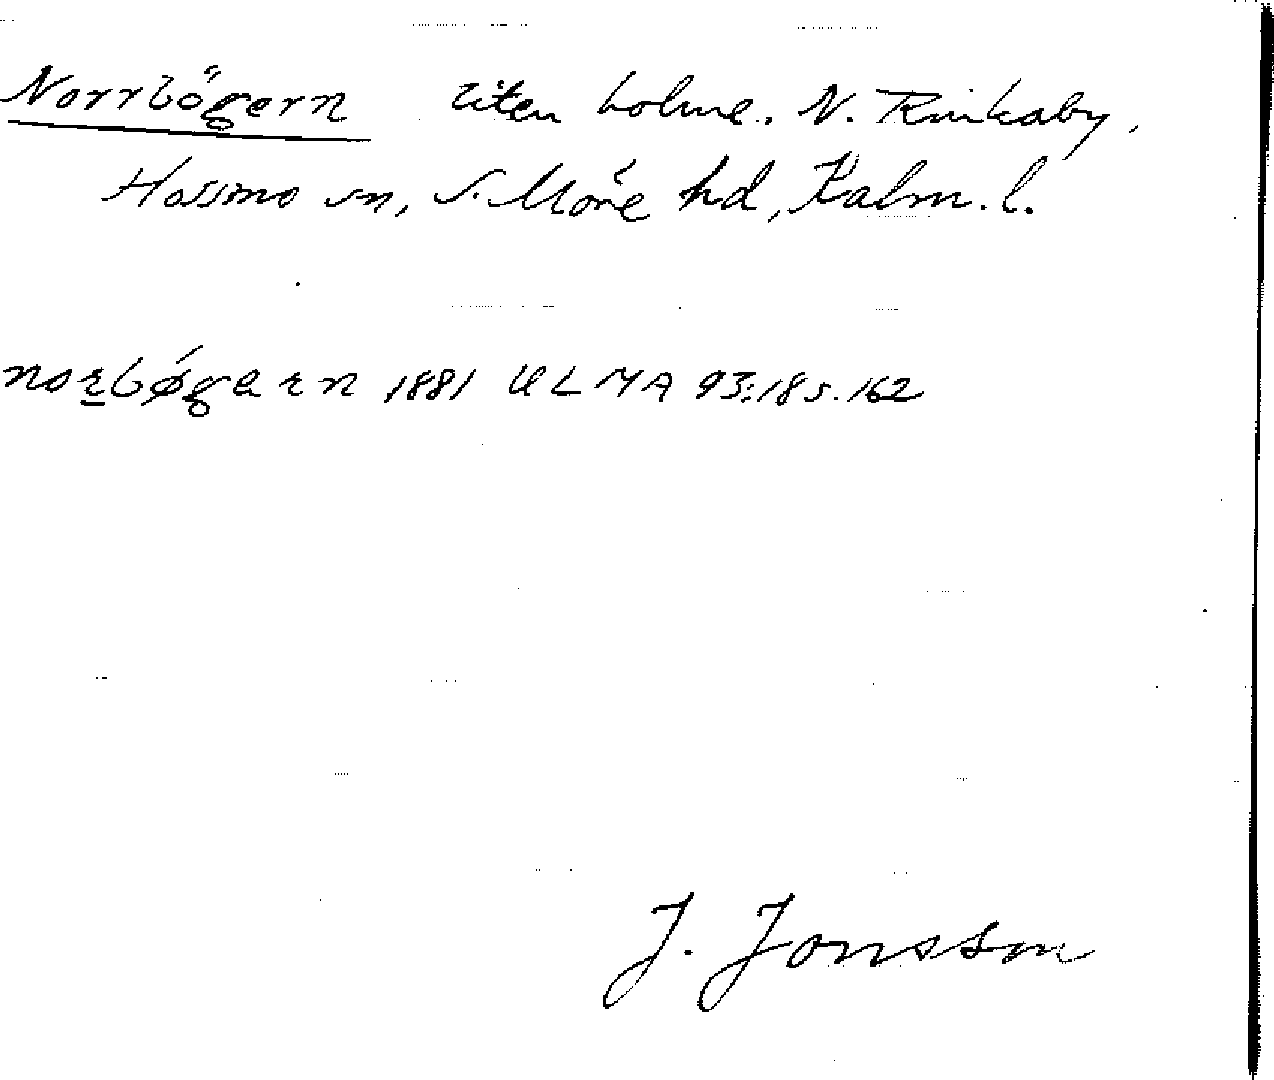 Norrbögern liten holme. N. Rinkaby,
Hossmo sn, S. Möre hd, Kalm. l.
norbøgarn 1881 ULMA 93:185.162
J. Jonsson